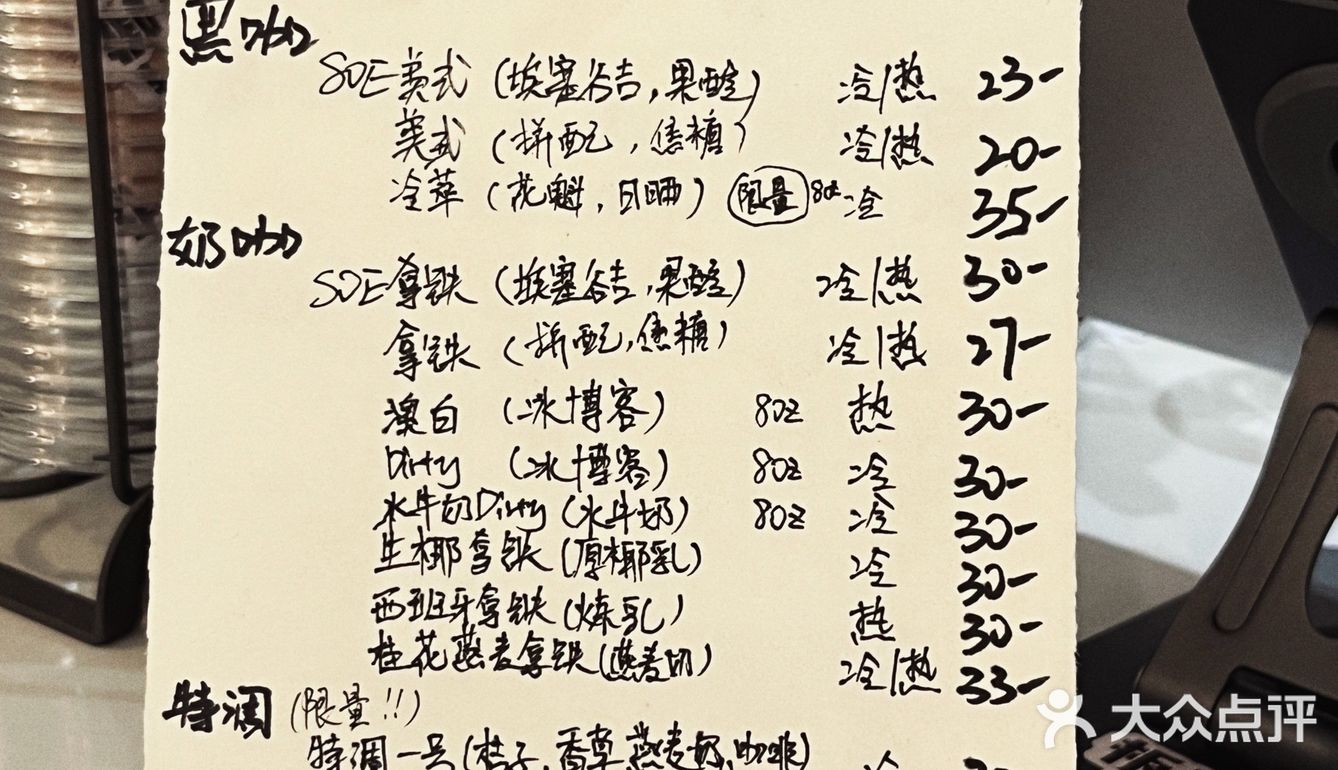 黑咖
SOE美式（埃塞谷吉，果酸） 冷/热 23-
美式（拼配，焦糖） 冷/热 20-
冷萃（花魁，日晒）限量 8oz 冷 35-
奶咖
SOE拿铁（埃塞谷吉，果酸） 冷/热 30-
拿铁（拼配，焦糖） 冷/热 27-
澳白（冰博客） 8oz 热 30-
Dirty（冰博客） 8oz 冷 30-
水牛奶Dirty（水牛奶） 8oz 冷 30-
生椰拿铁（厚椰乳） 冷 30-
西班牙拿铁（炼乳） 热 30-
桂花燕麦拿铁（燕麦奶） 冷/热 33-
特调（限量!!）
特调一号（桔子，香草，燕麦奶，咖啡） 冷
大众点评